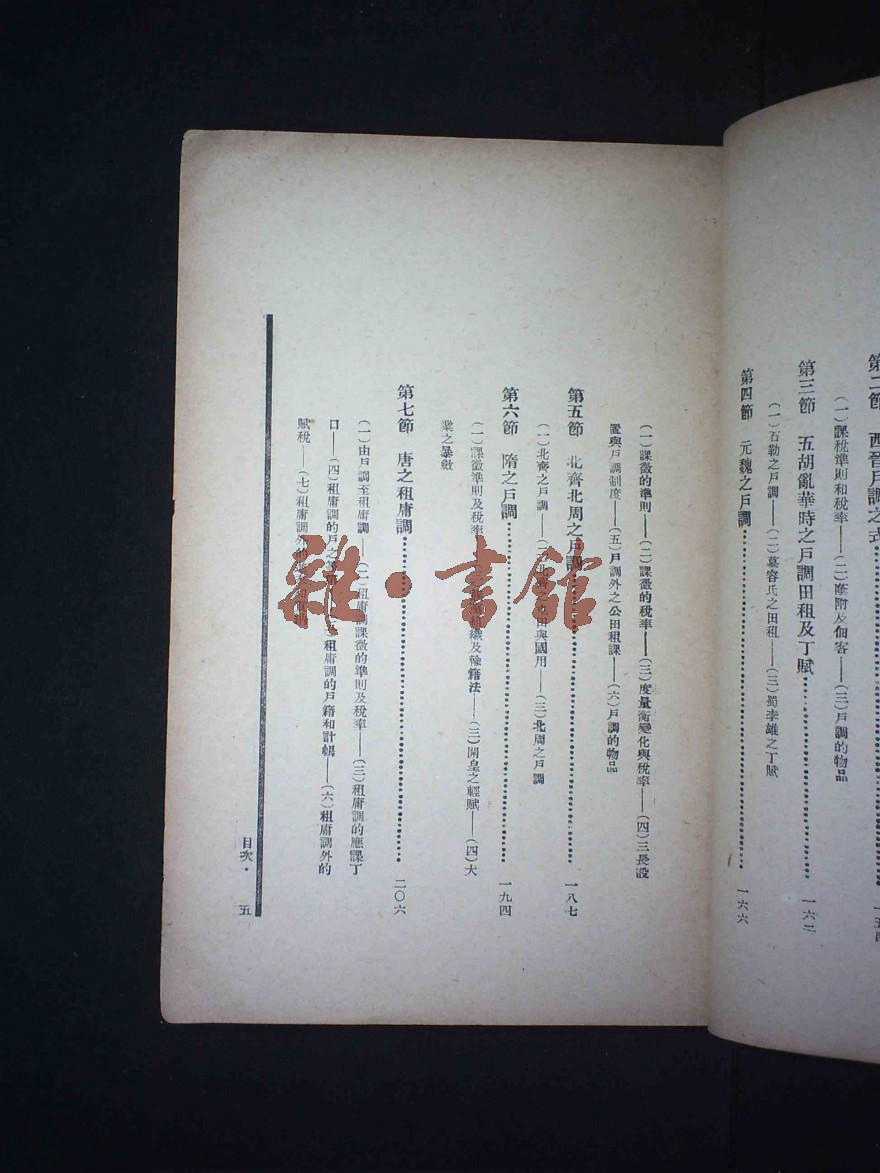 第二節　西晉戶調之式
(一)課稅準則和稅率——(二)蔭附及佃客——(三)戶調的物品
第三節　五胡亂華時之戶調田租及丁賦…………一六二
(一)石勒之戶調——(二)慕容氏之田租——(三)蜀李雄之丁賦
第四節　元魏之戶調…………一六六
(一)課徵的準則——(二)課徵的稅率——(三)度量衡變化與稅率——(四)三長設
置與戶調制度——(五)戶調外之公田租課——(六)戶調的物品
第五節　北齊北周之戶調…………一八七
(一)北齊之戶調——(二)北齊之 田與國用——(三)北周之戶調
第六節　隋之戶調…………一九四
(一)課徵準則及稅率 組織及輸籍法——(三)開皇之輕賦——(四)大
業之暴斂
第七節　唐之租庸調…………二〇六
(一)由戶調至租庸調——(二)租庸調課徵的準則及稅率——(三)租庸調的應課丁
口——(四)租庸調的戶之 租庸調的戶籍和計帳——(六)租庸調外的
賦稅——(七)租庸調外的
目次・五
雜・書館